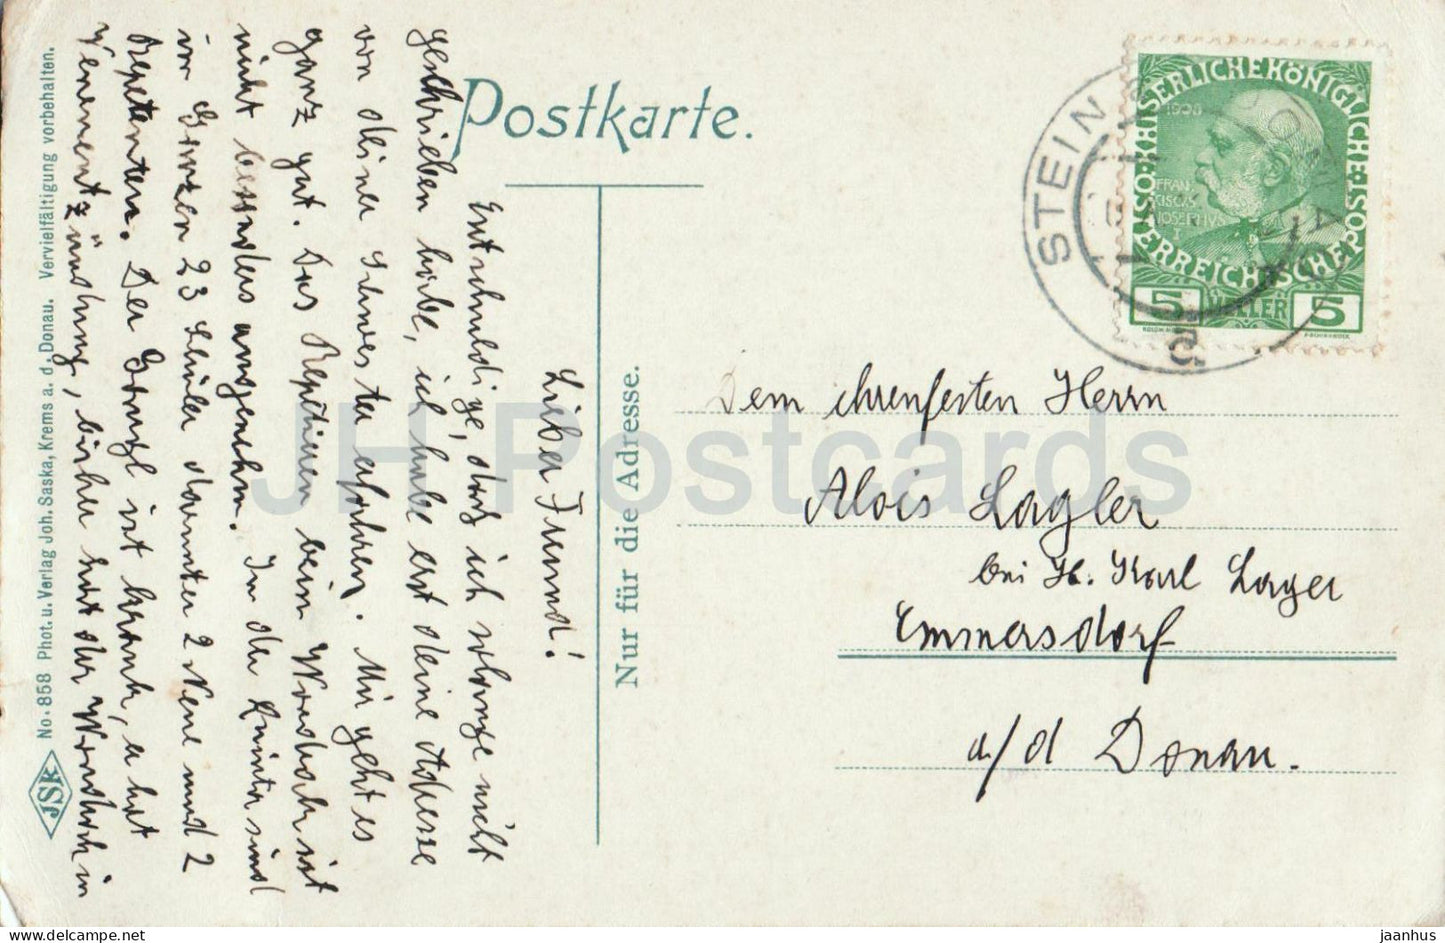 Postkarte.
Nur für die Adresse.
No. 858 Phot. u. Verlag Joh. Saska, Krems a. d. Donau. Vervielfältigung vorbehalten.
JSK
KAISERLICHE KÖNIGLICHE
ÖSTERREICHISCHE POST
1908
FRAN
CISCVS
IOSEPHVS
I
5 HELLER 5
STEIN
Dem ehrenfesten Herrn
Alois Lagler
bei H. Karl Lager
Emmersdorf
a/d Donau.
Lieber Freund!
Entschuldige, daß ich solange nicht
geschrieben habe, ich habe erst deine Adresse
von deiner Schwester erfahren. Mir geht es
ganz gut. Das Repetieren beim Wondrak ist
nicht besonders angenehm. In der Quinta sind
im Ganzen 23 Schüler darunter 2 Neue und 2
Repetenten. Der ist krank, er hat
Venenentzündung, bisher hat der Wondrak in
JH Postcards
jaanhus
www.delcampe.net